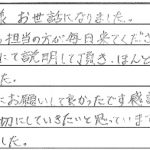 様 お世話になりました。
担当の方が毎日来てくださ
にて説明して頂き、ほんと
た。
にお願いして良かったです感謝
切にしていきたいと思っています
した。